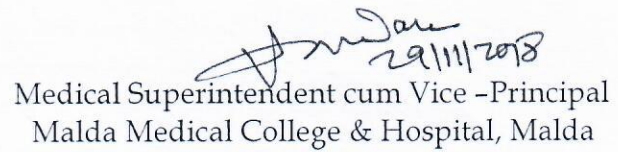 29/11/2018
Medical Superintendent cum Vice –Principal
Malda Medical College & Hospital, Malda